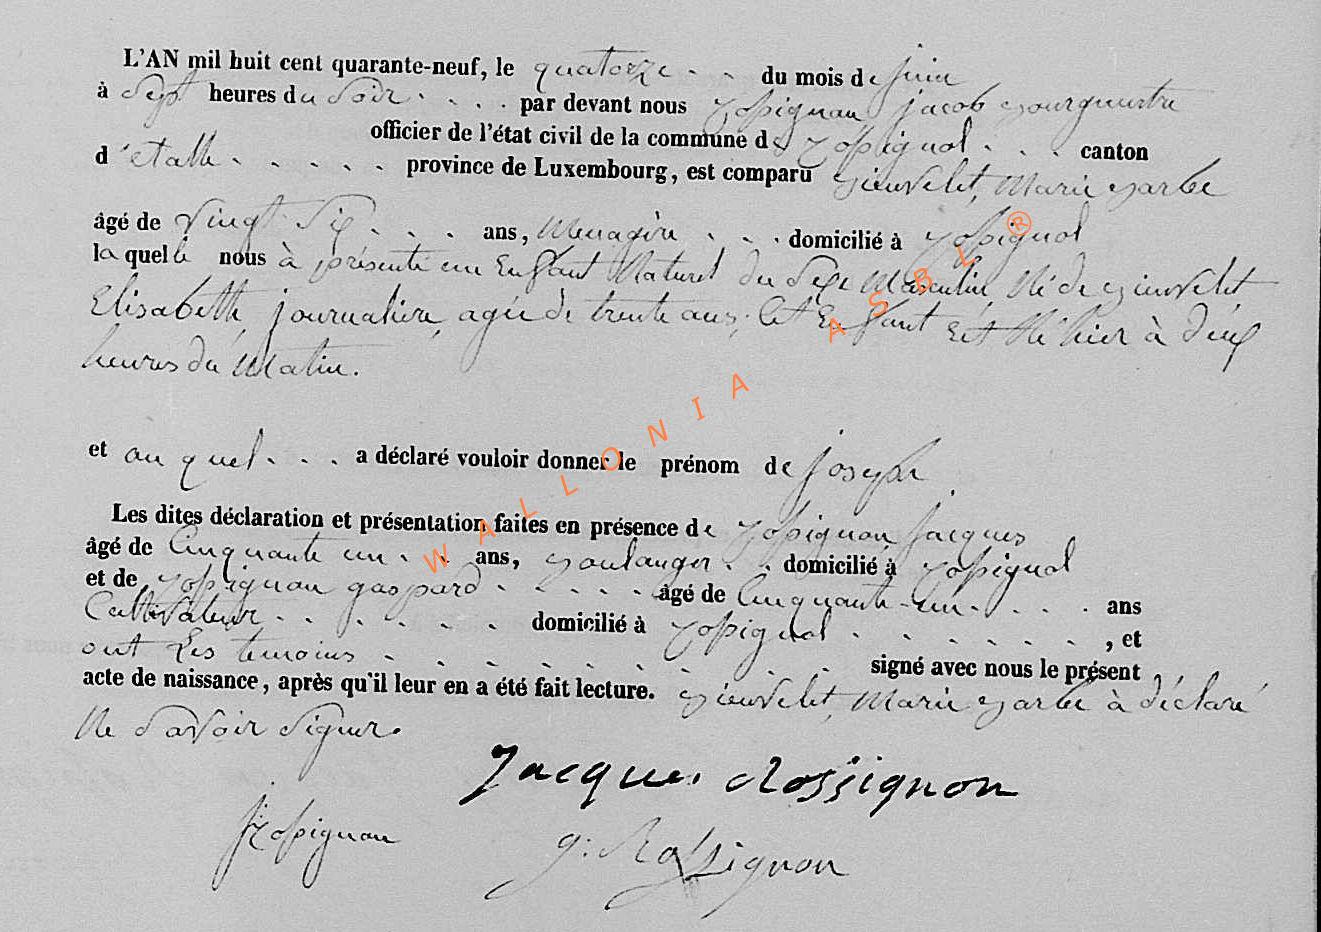 L'AN mil huit cent quarante-neuf, le quatorze . . du mois de juin
à Sept heures du Soir . . . . par devant nous Rossignon jacob Bourgumetre
officier de l'état civil de la commune de Rossignol . . . canton
d'étalle . . . . . province de Luxembourg, est comparu Bieuvelet, Marie Barbe
âgé de vingt Six . . . . ans, Menagère . . . domicilié à Rossignol
laquelle nous à présenté un Enfant Naturel du Sexe Masculin, Né de Bieuvelet
Elisabeth, journalière, agée de trente ans; Cet Enfant Est Né hier à deux
heures du Matin.
et au quel . . . a déclaré vouloir donner le prénom de joseph
Les dites déclaration et présentation faites en présence de Rossignon Jacques
âgé de Cinquante un . . ans, Boulanger . . domicilié à Rossignol
et de Rossignon gaspard . . . . . . âgé de Cinquante-un . . . . ans
Cultivateur . . . . . . . domicilié à Rossignol . . . . . . , et
ont Les temoins . . . . . . . . . signé avec nous le présent
acte de naissance, après qu'il leur en a été fait lecture. Bieuvelet, Marie Barbe à déclaré
Ne Savoir Signer.
Jacques Rossignon
J Rossignon
g: Rossignon
WALLONIA ASBL ®